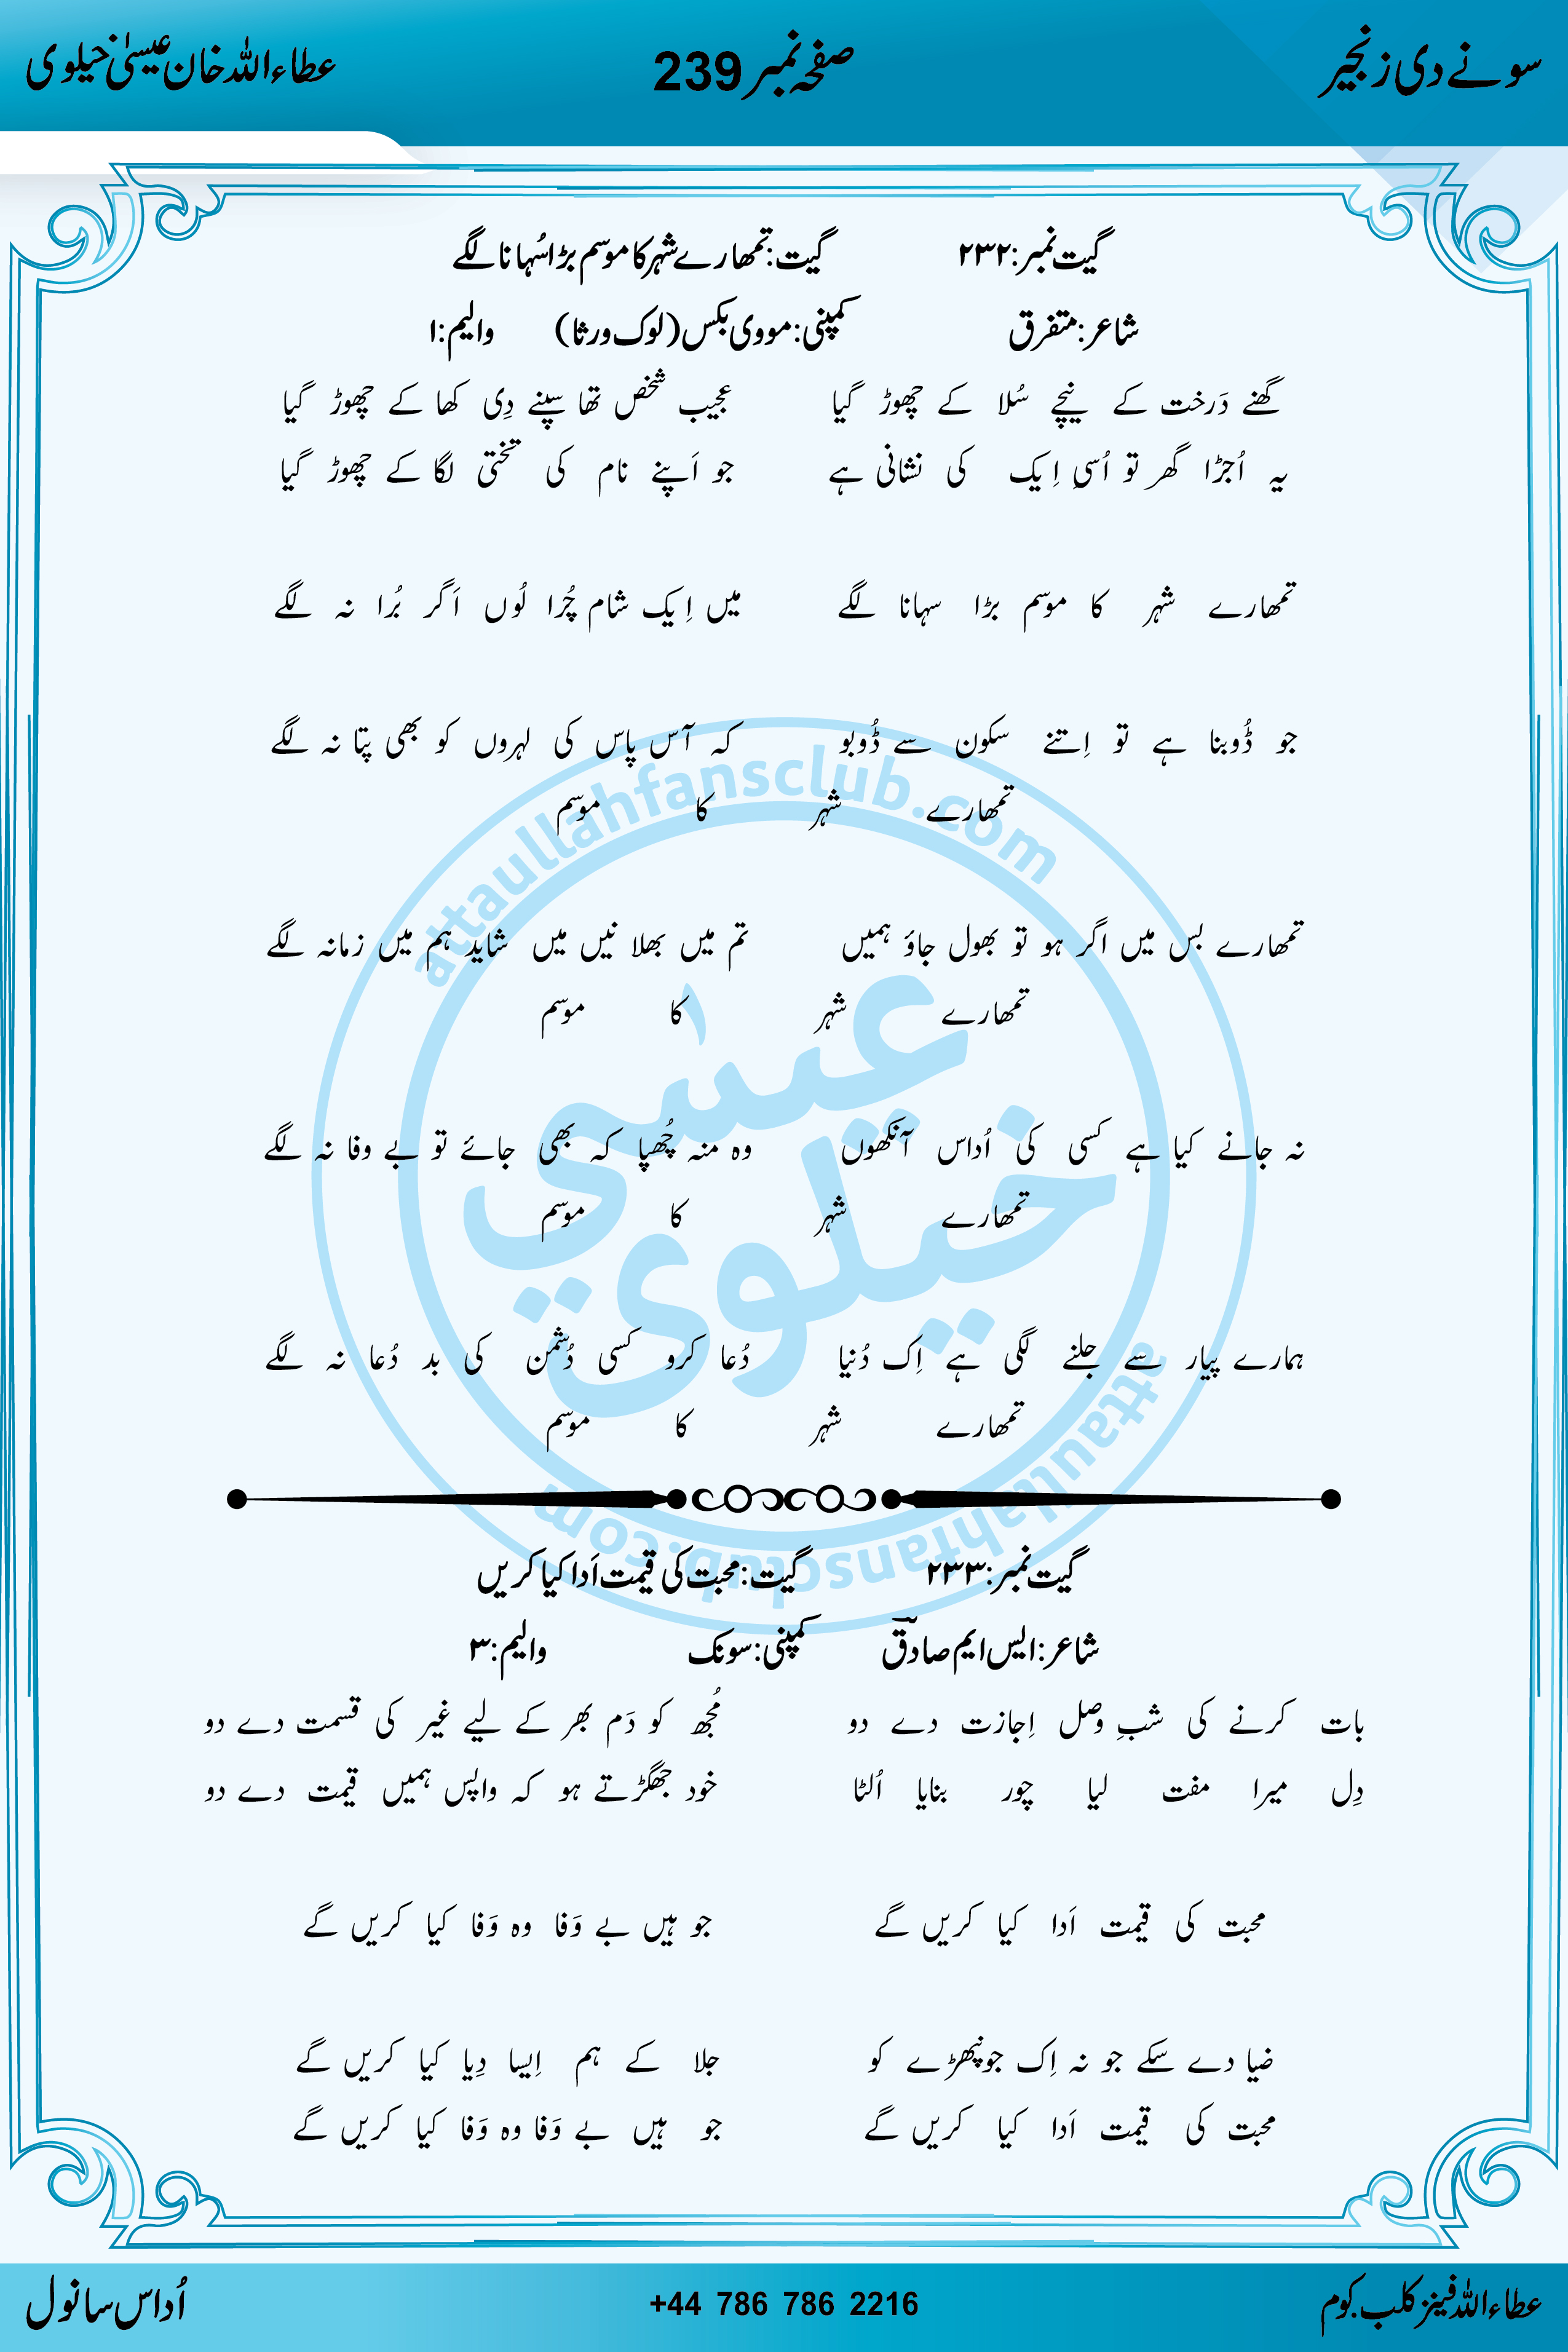 سونے دی زنجیر صفحہ نمبر 239 عطاء اللہ خان عیسیٰ خیلوی
گیت نمبر: ۲۳۲ گیت: تمھارے شہر کا موسم بڑا سُہانا لگے
شاعر: متفرق کمپنی: مووی بکس (لوک ورثا) والیم: ۱
گھنے دَرخت کے نیچے سُلا کے چھوڑ گیا عجیب شخص تھا سپنے دِی کھا کے چھوڑ گیا
یہ اُجڑا گھر تو اُسیِ اِیک کی نشانی ہے جو اَپنے نام کی تختی لگا کے چھوڑ گیا
تمھارے شہر کا موسم بڑا سہانا لگے میں اِیک شام چُرا لُوں اَگر بُرا نہ لگے
جو ڈُوبنا ہے تو اِتنے سکون سے ڈُوبو کہ آس پاس کی لہروں کو بھی پتا نہ لگے
تمھارے شہر کا موسم
تمھارے بس میں اگر ہو تو بھول جاؤ ہمیں تم میں بھلا نیں میں شاید ہم میں زمانہ لگے
تمھارے شہر کا موسم
نہ جانے کیا ہے کسی کی اُداس آنکھوں وہ منہ چُھپا کہ بھی جائے تو بے وفا نہ لگے
تمھارے شہر کا موسم
ہمارے پیار سے جلنے لگی ہے اِک دُنیا دُعا کرو کسی دُشمن کی بد دُعا نہ لگے
تمھارے شہر کا موسم
گیت نمبر: ۲۳۳ گیت: محبت کی قیمت اَدا کیا کریں
شاعر: ایس ایم صادقؔ کمپنی: سونک والیم: ۳
بات کرنے کی شبِ وصل اِجازت دے دو مُجھ کو دَم بھر کے لیے غیر کی قسمت دے دو
دِل میرا مفت لیا چور بنایا اُلٹا خود جھگڑتے ہو کہ واپس ہمیں قیمت دے دو
محبت کی قیمت اَدا کیا کریں گے جو ہیں بے وَفا وہ وَفا کیا کریں گے
ضیا دے سکے جو نہ اِک جونپھڑے کو جلا کے ہم اِیسا دِیا کیا کریں گے
محبت کی قیمت اَدا کیا کریں گے جو ہیں بے وَفا وہ وَفا کیا کریں گے
attaullahfansclub.com
عیسٰی
خیلوی
attaullahfansclub.com
عطاء اللہ فینز کلب.کوم +44 786 786 2216 اُداس سانول